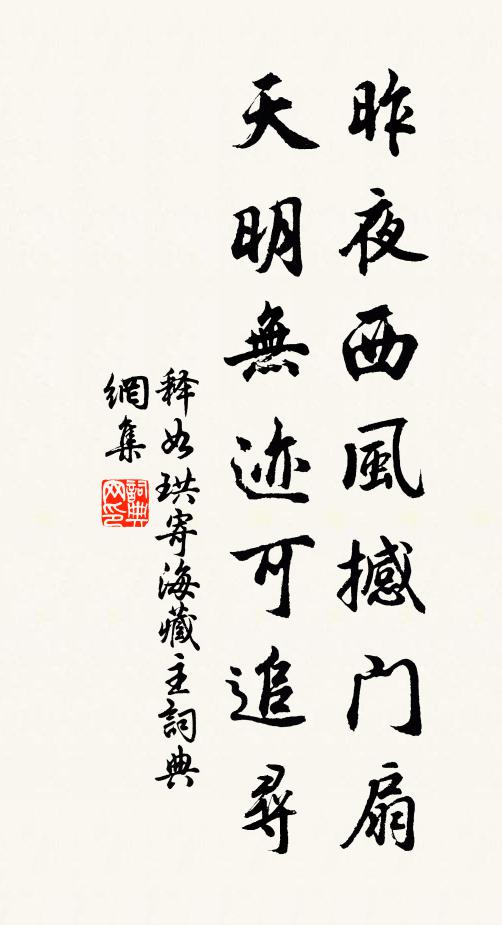 昨夜西風撼门扇
天明無迹可追尋
释如珙寄海藏主詞典
網集
詞典
网印